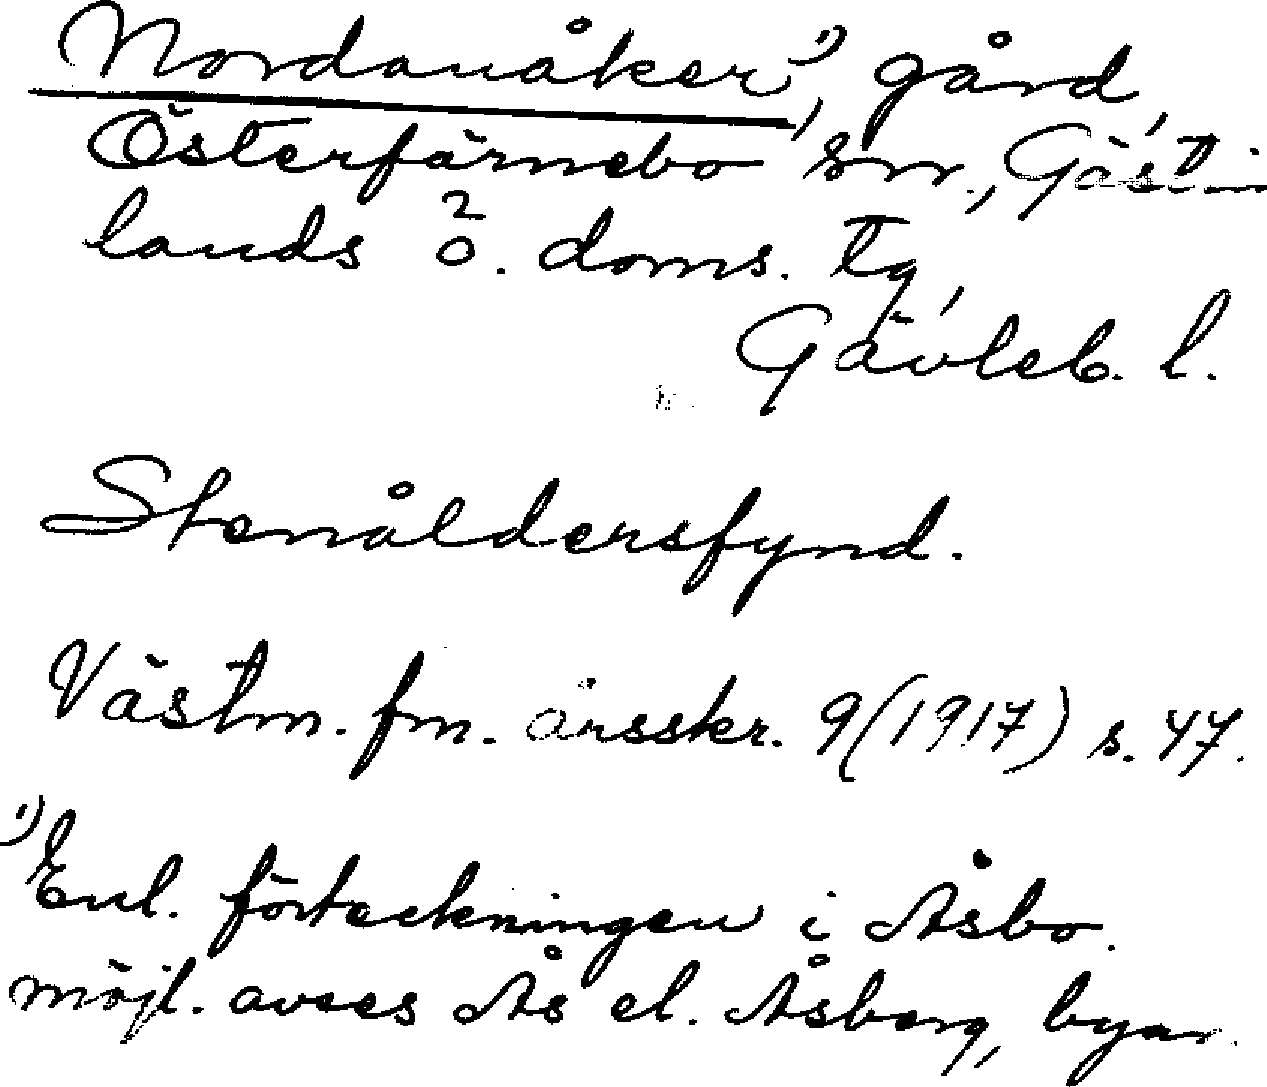 Nordanåker¹), gård,
Österfärnebo sn., Gäst-
lands ö. doms. tg,
Gävleb. l.
Stenåldersfynd.
Västm. fm. årsskr. 9 (1917) s. 47.
¹) Enl. förteckningen i Åsbo.
möjl. avses Ås el. Åsberg, byar.